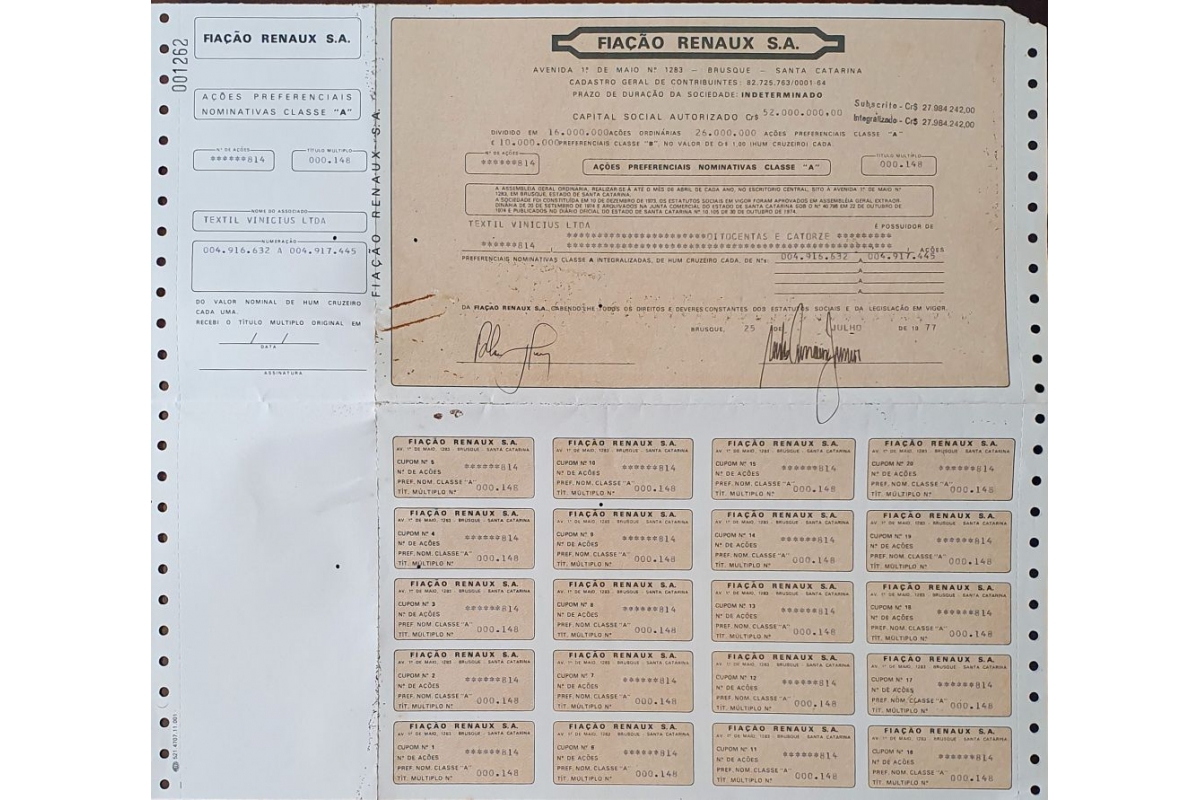 001262
FIAÇÃO RENAUX S.A.
AÇÕES PREFERENCIAIS
NOMINATIVAS CLASSE "A"
Nº DE AÇÕES
******814
TÍTULO MÚLTIPLO
000.148
NOME DO ASSOCIADO
TEXTIL VINICIUS LTDA
NUMERAÇÃO
004.916.632 A 004.917.445
DO VALOR NOMINAL DE HUM CRUZEIRO
CADA UMA.
RECEBI O TÍTULO MULTIPLO ORIGINAL EM
DATA
ASSINATURA
FIAÇÃO RENAUX S.A.
FIAÇÃO RENAUX S.A.
AVENIDA 1º DE MAIO Nº 1283 — BRUSQUE — SANTA CATARINA
CADASTRO GERAL DE CONTRIBUINTES: 82.725.763/0001-64
PRAZO DE DURAÇÃO DA SOCIEDADE: INDETERMINADO
CAPITAL SOCIAL AUTORIZADO Cr$ 52.000.000,00
Subscrito - Cr$ 27.984.242,00
Integralizado - Cr$ 27.984.242,00
DIVIDIDO EM 16.000.000 AÇÕES ORDINÁRIAS 26.000.000 AÇÕES PREFERENCIAIS CLASSE "A"
E 10.000.000 PREFERENCIAIS CLASSE "B", NO VALOR DE Cr$ 1,00 (HUM CRUZEIRO) CADA.
Nº DE AÇÕES
******814
AÇÕES PREFERENCIAIS NOMINATIVAS CLASSE "A"
TÍTULO MÚLTIPLO
000.148
A ASSEMBLÉIA GERAL ORDINÁRIA, REALIZAR-SE-Á ATÉ O MÊS DE ABRIL DE CADA ANO, NO ESCRITÓRIO CENTRAL, SITO À AVENIDA 1º DE MAIO Nº
1283, EM BRUSQUE, ESTADO DE SANTA CATARINA.
A SOCIEDADE FOI CONSTITUÍDA EM 10 DE DEZEMBRO DE 1973. OS ESTATUTOS SOCIAIS EM VIGOR FORAM APROVADOS EM ASSEMBLÉIA GERAL EXTRAOR-
DINÁRIA DE 20 DE SETEMBRO DE 1974 E ARQUIVADOS NA JUNTA COMERCIAL DO ESTADO DE SANTA CATARINA SOB O Nº 40.798 EM 22 DE OUTUBRO DE
1974 E PUBLICADOS NO DIÁRIO OFICIAL DO ESTADO DE SANTA CATARINA Nº 10.105 DE 30 DE OUTUBRO DE 1974.
TEXTIL VINICIUS LTDA
É POSSUIDOR DE
******814
OITOCENTAS E CATORZE *********
AÇÕES
PREFERENCIAIS NOMINATIVAS CLASSE A INTEGRALIZADAS, DE HUM CRUZEIRO CADA, DE Nºs: 004.916.632 A 004.917.445
A
A
A
DA FIAÇÃO RENAUX S.A. CABENDO-LHE TODOS OS DIREITOS E DEVERES CONSTANTES DOS ESTATUTOS SOCIAIS E DA LEGISLAÇÃO EM VIGOR.
BRUSQUE, 25 DE JULHO DE 1977
FIAÇÃO RENAUX S.A.
AV. 1º DE MAIO, 1283 - BRUSQUE - SANTA CATARINA
CUPOM Nº 5
Nº DE AÇÕES ******814
PREF. NOM. CLASSE "A"
TÍT. MÚLTIPLO Nº 000.148
FIAÇÃO RENAUX S.A.
AV. 1º DE MAIO, 1283 - BRUSQUE - SANTA CATARINA
CUPOM Nº 10
Nº DE AÇÕES ******814
PREF. NOM. CLASSE "A"
TÍT. MÚLTIPLO Nº 000.148
FIAÇÃO RENAUX S.A.
AV. 1º DE MAIO, 1283 - BRUSQUE - SANTA CATARINA
CUPOM Nº 15
Nº DE AÇÕES ******814
PREF. NOM. CLASSE "A"
TÍT. MÚLTIPLO Nº 000.148
FIAÇÃO RENAUX S.A.
AV. 1º DE MAIO, 1283 - BRUSQUE - SANTA CATARINA
CUPOM Nº 20
Nº DE AÇÕES ******814
PREF. NOM. CLASSE "A"
TÍT. MÚLTIPLO Nº 000.148
FIAÇÃO RENAUX S.A.
AV. 1º DE MAIO, 1283 - BRUSQUE - SANTA CATARINA
CUPOM Nº 4
Nº DE AÇÕES ******814
PREF. NOM. CLASSE "A"
TÍT. MÚLTIPLO Nº 000.148
FIAÇÃO RENAUX S.A.
AV. 1º DE MAIO, 1283 - BRUSQUE - SANTA CATARINA
CUPOM Nº 9
Nº DE AÇÕES ******814
PREF. NOM. CLASSE "A"
TÍT. MÚLTIPLO Nº 000.148
FIAÇÃO RENAUX S.A.
AV. 1º DE MAIO, 1283 - BRUSQUE - SANTA CATARINA
CUPOM Nº 14
Nº DE AÇÕES ******814
PREF. NOM. CLASSE "A"
TÍT. MÚLTIPLO Nº 000.148
FIAÇÃO RENAUX S.A.
AV. 1º DE MAIO, 1283 - BRUSQUE - SANTA CATARINA
CUPOM Nº 19
Nº DE AÇÕES ******814
PREF. NOM. CLASSE "A"
TÍT. MÚLTIPLO Nº 000.148
FIAÇÃO RENAUX S.A.
AV. 1º DE MAIO, 1283 - BRUSQUE - SANTA CATARINA
CUPOM Nº 3
Nº DE AÇÕES ******814
PREF. NOM. CLASSE "A"
TÍT. MÚLTIPLO Nº 000.148
FIAÇÃO RENAUX S.A.
AV. 1º DE MAIO, 1283 - BRUSQUE - SANTA CATARINA
CUPOM Nº 8
Nº DE AÇÕES ******814
PREF. NOM. CLASSE "A"
TÍT. MÚLTIPLO Nº 000.148
FIAÇÃO RENAUX S.A.
AV. 1º DE MAIO, 1283 - BRUSQUE - SANTA CATARINA
CUPOM Nº 13
Nº DE AÇÕES ******814
PREF. NOM. CLASSE "A"
TÍT. MÚLTIPLO Nº 000.148
FIAÇÃO RENAUX S.A.
AV. 1º DE MAIO, 1283 - BRUSQUE - SANTA CATARINA
CUPOM Nº 18
Nº DE AÇÕES ******814
PREF. NOM. CLASSE "A"
TÍT. MÚLTIPLO Nº 000.148
FIAÇÃO RENAUX S.A.
AV. 1º DE MAIO, 1283 - BRUSQUE - SANTA CATARINA
CUPOM Nº 2
Nº DE AÇÕES ******814
PREF. NOM. CLASSE "A"
TÍT. MÚLTIPLO Nº 000.148
FIAÇÃO RENAUX S.A.
AV. 1º DE MAIO, 1283 - BRUSQUE - SANTA CATARINA
CUPOM Nº 7
Nº DE AÇÕES ******814
PREF. NOM. CLASSE "A"
TÍT. MÚLTIPLO Nº 000.148
FIAÇÃO RENAUX S.A.
AV. 1º DE MAIO, 1283 - BRUSQUE - SANTA CATARINA
CUPOM Nº 12
Nº DE AÇÕES ******814
PREF. NOM. CLASSE "A"
TÍT. MÚLTIPLO Nº 000.148
FIAÇÃO RENAUX S.A.
AV. 1º DE MAIO, 1283 - BRUSQUE - SANTA CATARINA
CUPOM Nº 17
Nº DE AÇÕES ******814
PREF. NOM. CLASSE "A"
TÍT. MÚLTIPLO Nº 000.148
FIAÇÃO RENAUX S.A.
AV. 1º DE MAIO, 1283 - BRUSQUE - SANTA CATARINA
CUPOM Nº 1
Nº DE AÇÕES ******814
PREF. NOM. CLASSE "A"
TÍT. MÚLTIPLO Nº 000.148
FIAÇÃO RENAUX S.A.
AV. 1º DE MAIO, 1283 - BRUSQUE - SANTA CATARINA
CUPOM Nº 6
Nº DE AÇÕES ******814
PREF. NOM. CLASSE "A"
TÍT. MÚLTIPLO Nº 000.148
FIAÇÃO RENAUX S.A.
AV. 1º DE MAIO, 1283 - BRUSQUE - SANTA CATARINA
CUPOM Nº 11
Nº DE AÇÕES ******814
PREF. NOM. CLASSE "A"
TÍT. MÚLTIPLO Nº 000.148
FIAÇÃO RENAUX S.A.
AV. 1º DE MAIO, 1283 - BRUSQUE - SANTA CATARINA
CUPOM Nº 16
Nº DE AÇÕES ******814
PREF. NOM. CLASSE "A"
TÍT. MÚLTIPLO Nº 000.148